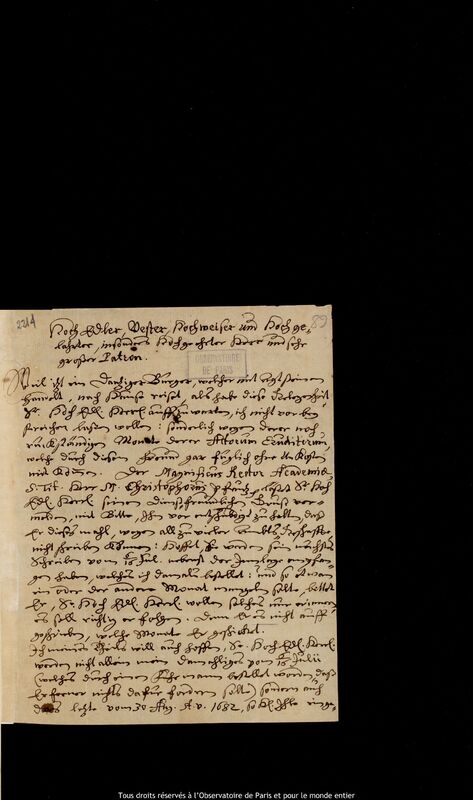 2214
89
Hoch Edler, Vester, Hochweiser und Hochge-
lahrter, insonders Hochgeehrter Herr und sehr
großer Patron.
OBSERVATOIRE
DE PARIS
Weil itzt ein Dantziger Bürger, welcher mit
handelt, nach Hause reiset, als habe diese Gelegenheit
Sr. Hoch Edl. Herrl. auffzuwarten, ich nicht vorbey
streichen laßen wollen: sonderlich wegen derer noch
rückständigen Monate derer Actorum Eruditorum,
welche durch diesen gar füglich ohne Kosten
mit können. Der Magnificus Rector Academiæ
S. tit. Herr M. Christophorus Pfautz, läst Sr. Hoch
Edl. Herrl. seinen Dienstfreundlichen Gruß ver-
melden, mit Bitte, Ihn vor entschuldiget zu halten, daß
Er dieses mahl, wegen allzu vieler Ambts Geschäffte
nicht schreiben können: Hoffet, Sie werden sein nechstes
Schreiben vom Jul. nebenst der empfan-
gen haben, welches ich damals bestellet: und so etwan
ein oder der andere Monat mangeln solte, bittet
Er, Sr. Hoch Edl. Herrl. wollen solches nur erinnern,
es soll richtig er folgen. Denn Er es nicht auff-
geschrieben, welche Monate Er geschicket.
Ich meines Theils will auch hoffen, Sr. Hoch Edl. Herrl.
werden nicht allein mein damahliges vom Julii
(welches durch einen Fuhrmann bestellet worden, daß
Er ferner nichts dafür fordern solte) sondern auch
das letzte vom 30 Aug. A.v. 1682,
Tous droits réservés à l'Observatoire de Paris et pour le monde entier